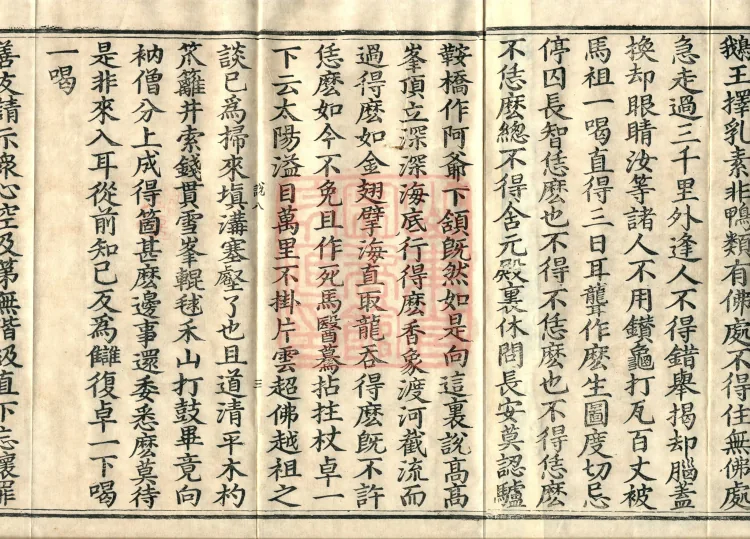 鵝王擇乳素非鴨類有佛處不得住無佛處
急走過三千里外逢人不得錯舉揭却腦蓋
換却眼睛汝等諸人不用鑽龜打瓦百丈被
馬祖一喝直得三日耳聾作麼生圖度切忌
停囚長智恁麼也不得不恁麼也不得恁麼
不恁麼總不得含元殿裏休問長安莫認驢
鞍橋作阿爺下頷旣然如是向這裏說高高
峯頂立深深海底行得麼香象渡河截流而
過得麼如金翅擘海直取龍吞得麼旣不許
恁麼如今不免且作死馬醫驀拈拄杖卓一
下云太陽溢目萬里不掛片雲超佛越祖之
說八
三
談已爲掃來塡溝塞壑了也且道清平木杓
笊籬井索錢貫雪峯輥毬禾山打鼓畢竟向
衲僧分上成得箇甚麼邊事還委悉麼莫待
是非來入耳從前知己反爲讎復卓一下喝
一喝
善友請示衆心空及第無階級直下忘懷罪